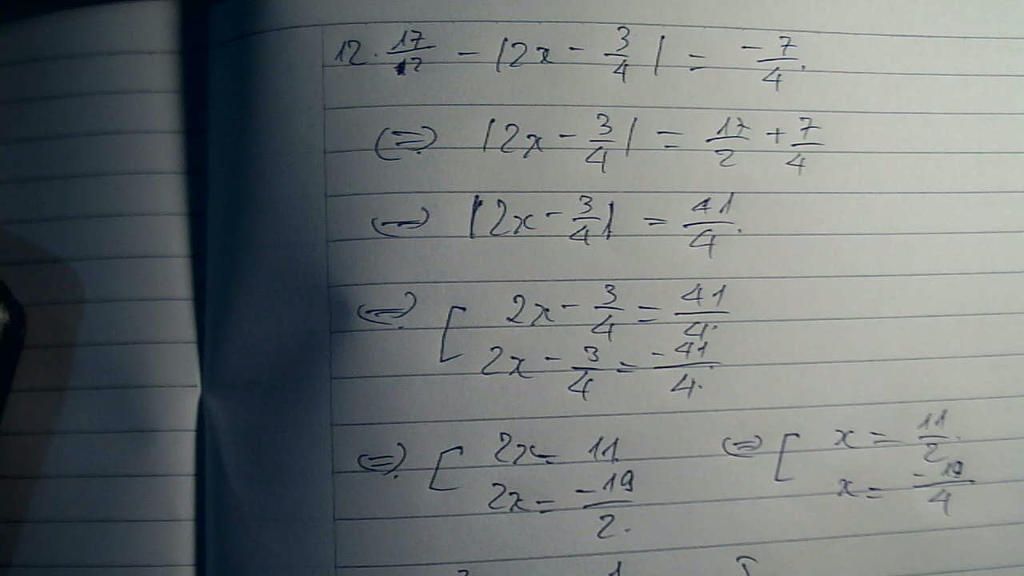 12. 17/12 - |2x - 3/4| = -7/4.
(=) |2x - 3/4| = 17/2 + 7/4
(=) |2x - 3/4| = 41/4.
(=) [ 2x - 3/4 = 41/4.
2x - 3/4 = -41/4.
(=) [ 2x = 11 (=) [ x = 11/2.
2x = -19/2. x = -19/4